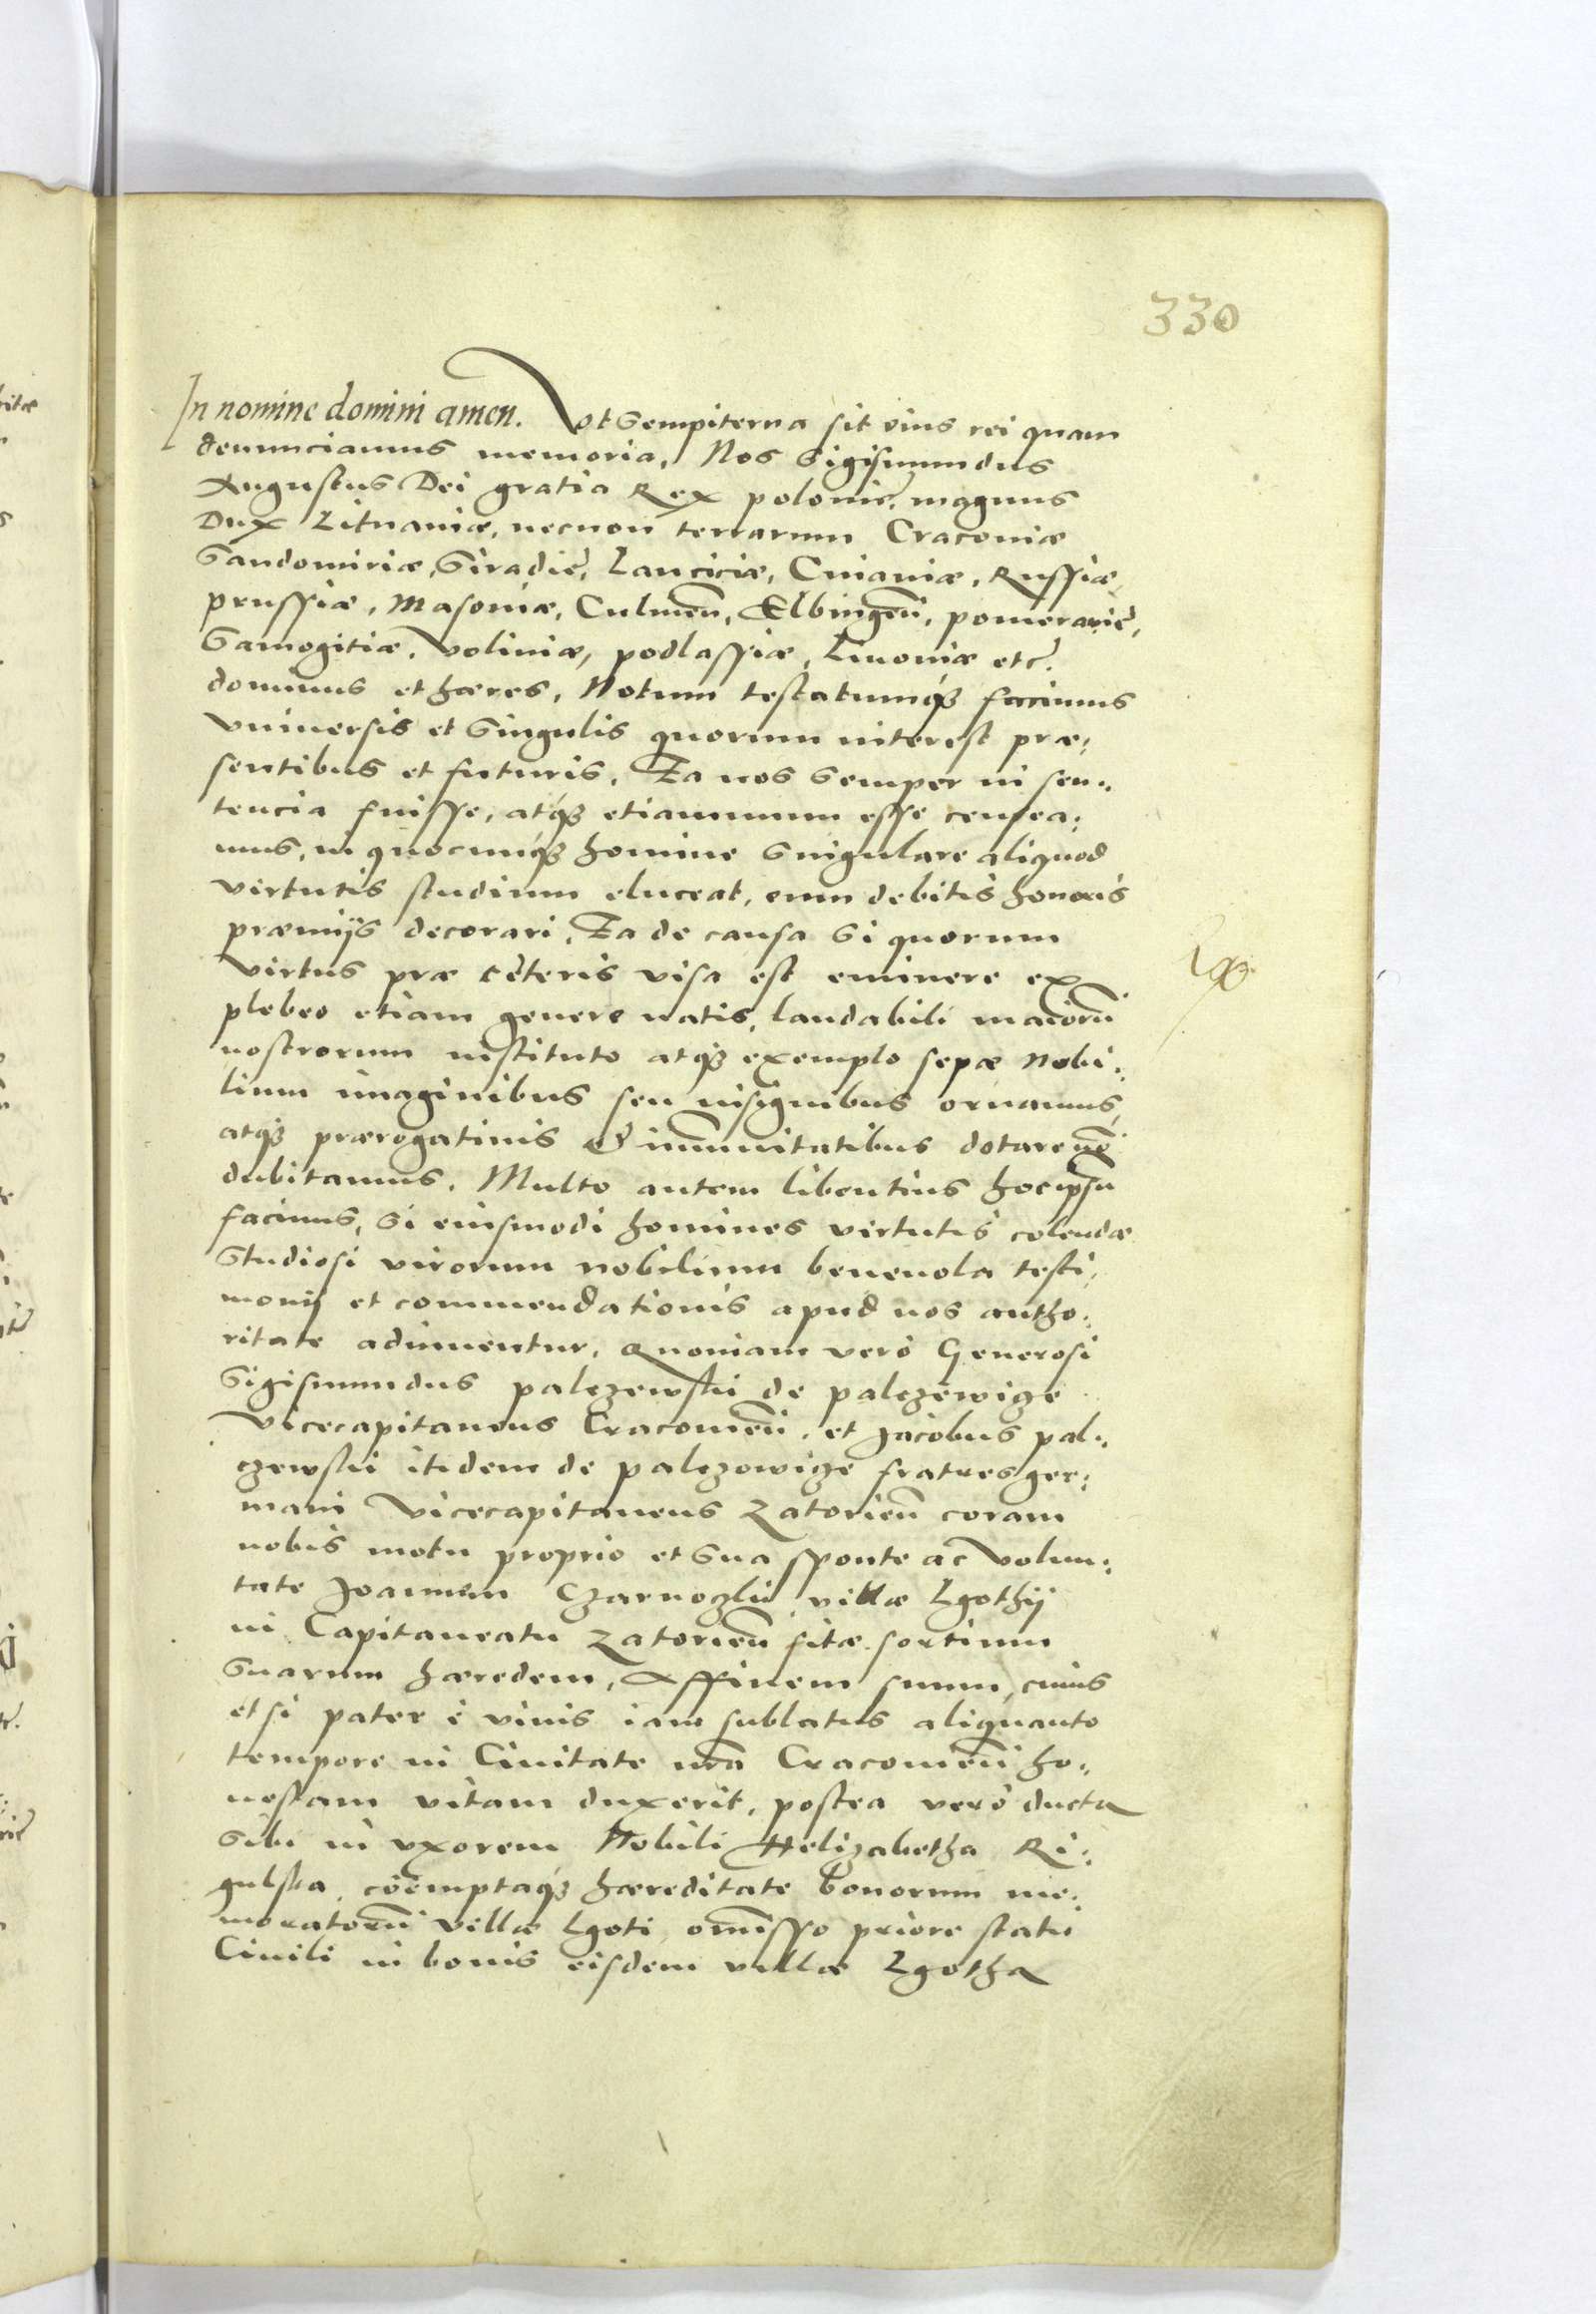 330
In nomine domini amen. Vt Sempiterna sit eius rei quam
denunciamus memoria, Nos Sigismundus
Augustus Dei gratia Rex polonię, magnus
Dux Lituaniæ, necnon terrarum Cracoviæ
Sandomiriæ, Siradię, Lanciciæ, Cuiaviæ, Russiæ,
prussiæ, Masoviæ, Culmeñ, Elbingeñ, pomeranię,
Samogitiæ, Voliniæ, podlassiæ, Livoniæ etc̃.
dominus et hæres, Notum testatumq₃ facimus
Vniversis et Singulis quorum interest præ-
sentibus et futuris. Ea nos semper in sen-
tencia fuisse, atq₃ etiamnum esse censea-
mus, in quocunq₃ homine singulare aliquod
virtutis studium eluceat, eum debitis honoris
præmijs decorari. Ea de causa Si quorum
virtus præ cęteris visa est eminere ex
plebeo etiam genere natis, laudabili maiorũ
nostrorum instituto atq₃ exemplo sepæ Nobi-
lium imaginibus seu insignibus ornamus,
atq₃ prærogativis & im̃unitatibus dotare nõ
dubitamus. Multo autem libentius hoc ip̃su
facimus, Si eiusmodi homines virtutis colendæ
Studiosi virorum nobilium benevola testi-
monij et commendationis apud nos autho-
ritate adiuventur. Quoniam verò Generosi
Sigismundus palczewski de palczewicze
Vicecapitaneus Cracovieñ. et Jacobus pal-
czewski itidem de palczowicze fratres ger-
mani Vicecapitaneus Zatorieñ coram
nobis motu proprio et Sua sponte ac volun-
tate Joannem villæ Lgothij
in Capitaneatu Zatorieñ sitæ sortium
Suarum hæredem, Affinem suum, cuius
etsi pater è vivis iam sublatus aliquanto
tempore in Civitate nr̃a Cracovieñ ho-
nestam vitam duxerit, postea verò ducta
Sibi in vxorem Nobili Helizabetha Ri-
gulska, coëmptaq₃ hæreditate bonorum me-
moratorũ villæ Lgoti, omisso priore statu
Civili in bonis eisdem villæ Lgotha